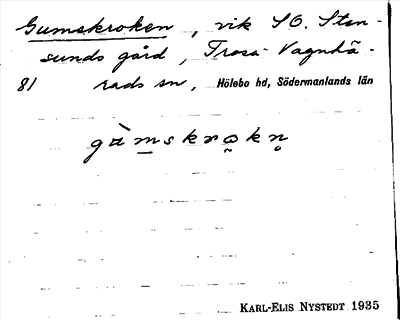 Gumskroken, vik SO. Sten-
sunds gård, Trosa-Vagnhä-
81 rads sn, Hölebo hd, Södermanlands län
gù̀mskro̰kn̥
KARL-ELIS NYSTEDT 1935